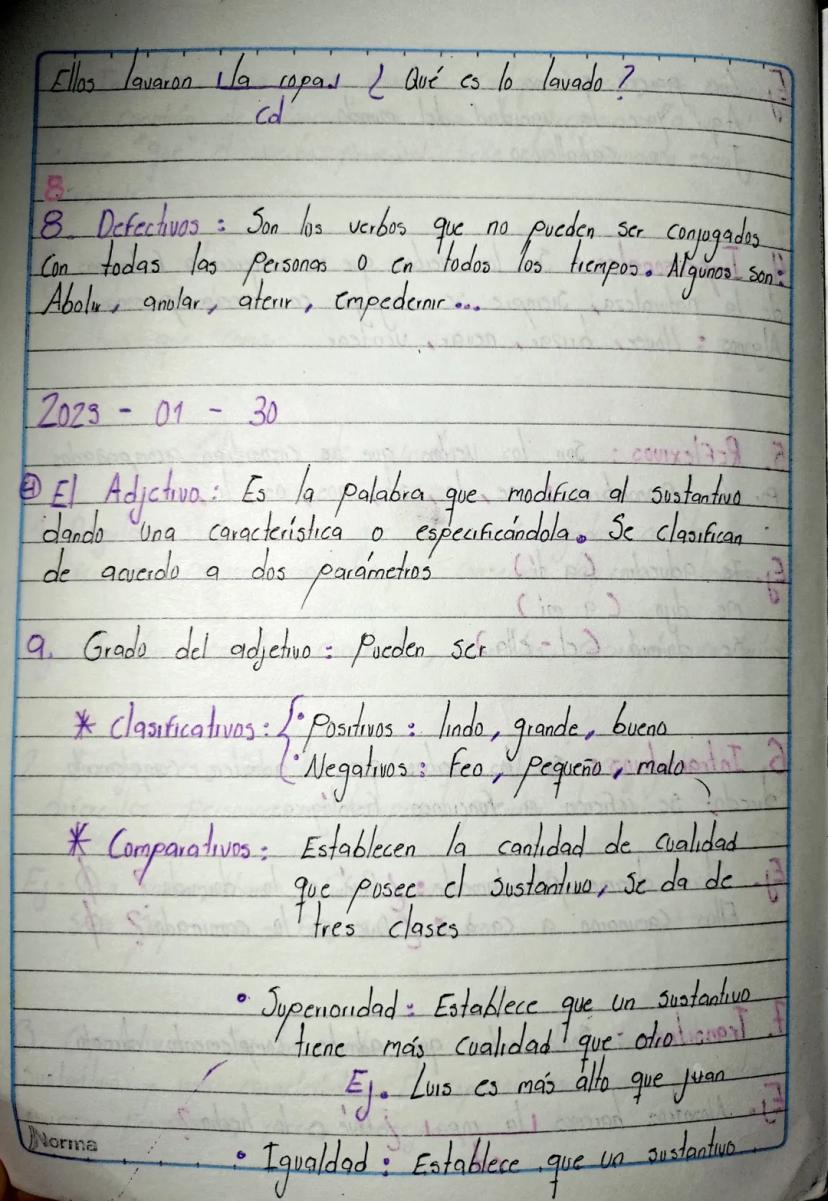 Ellos lavaron la ropa ¿ Qué es lo lavado ?
Cd
8
8 Defectivos : Son los verbos que no pueden ser conjugados
con todas las personas o en todos los tiempos. Algunos son:
Abolir, anolar, aterir, empedernir...
2023 - 01 - 30
El Adjctivo : Es la palabra que modifica al sustantivo
dando una característica o especificándola. Se clasifican
de acuerdo a dos parámetros
a. Grado del adjetivo : Pueden ser
* Clasificativos : { • Positivos : lindo, grande, bueno
• Negativos : Feo, pequeño, malo
* Comparativos : Establecen la cantidad de cualidad
que posee el sustantivo, se da de
tres clases
• Superioridad : Establece que un sustantivo
tiene más cualidad que otro
Ej. Luis es más alto que Juan
• Igualdad : Establece que un sustantivo
Norma